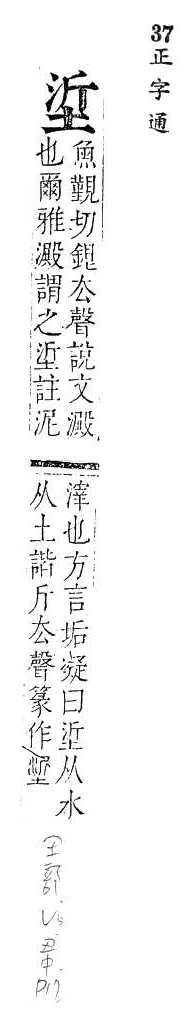 37
正字通
垽
魚覲切銀去聲說文澱
也爾雅澱謂之垽註泥
滓也方言垢凝曰垽从水
从土諧斤去聲篆作垽
土部